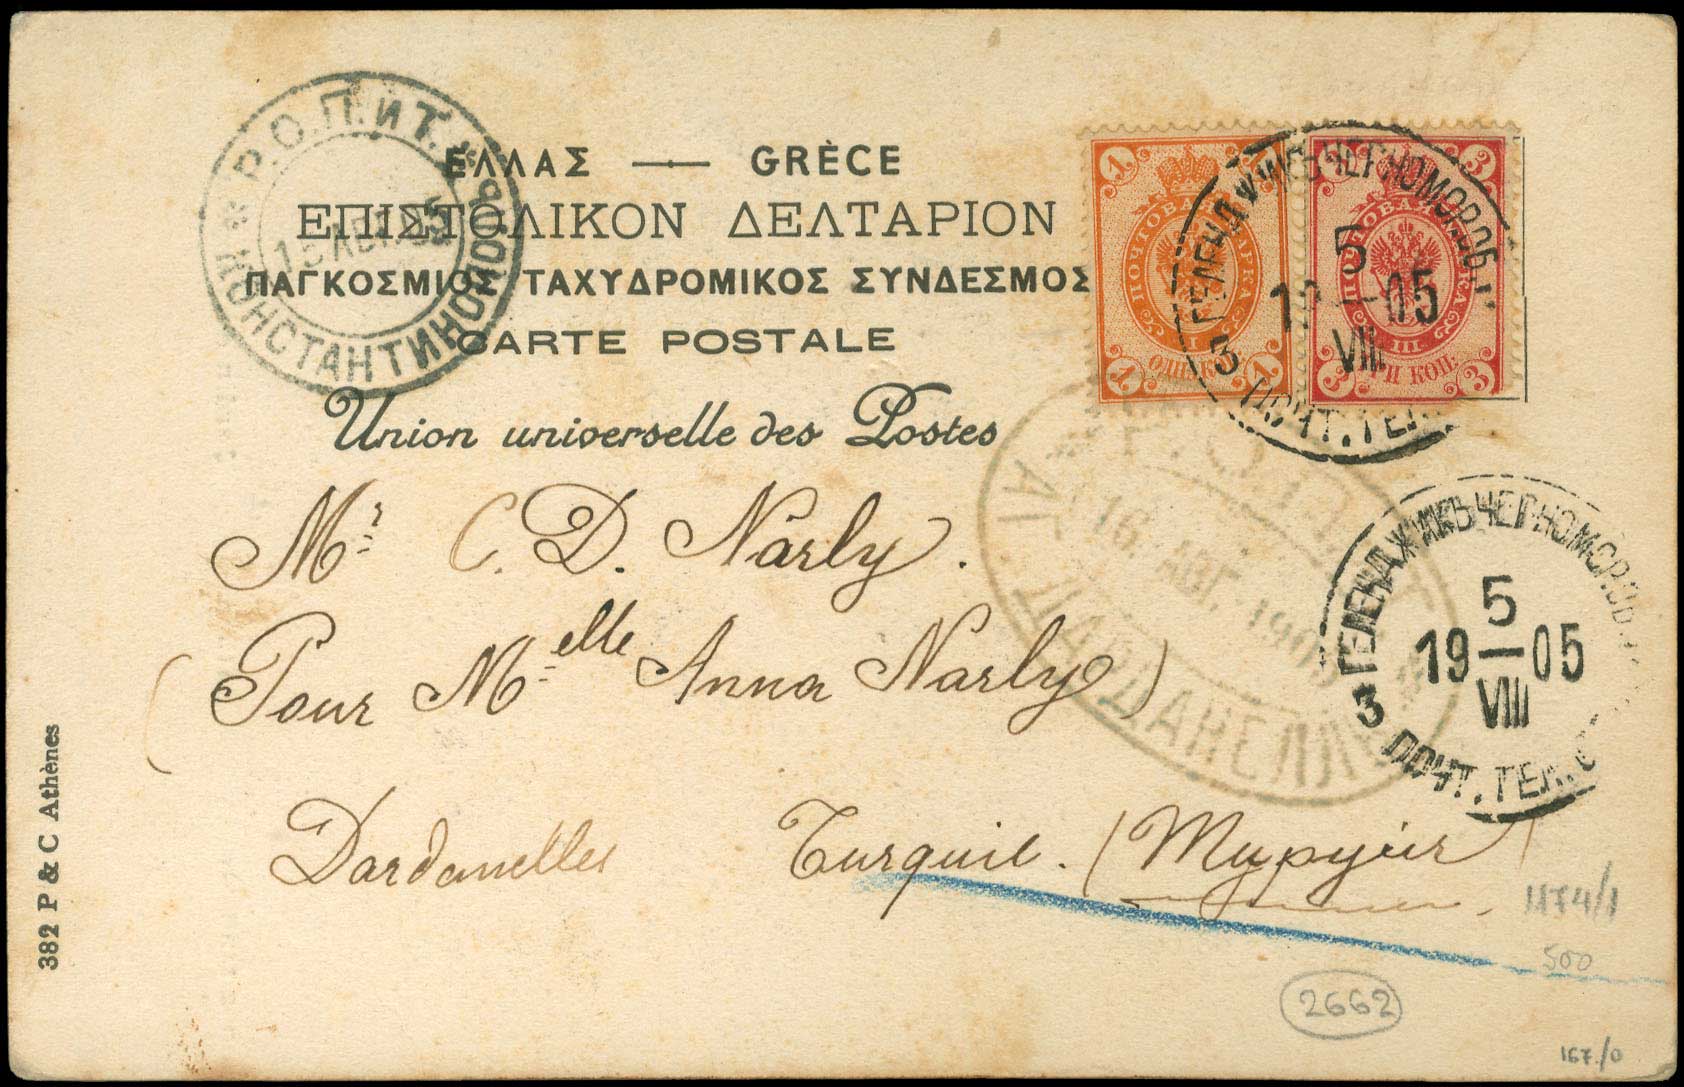 Р.О.П.иТ.
КОНСТАНТИНОПОЛЬ
ΕΛΛΑΣ — GRÈCE
ΕΠΙΣΤΟΛΙΚΟΝ ΔΕΛΤΑΡΙΟΝ
ΠΑΓΚΟΣΜΙΟΣ ΤΑΧΥΔΡΟΜΙΚΟΣ ΣΥΝΔΕΣΜΟΣ
CARTE POSTALE
Union universelle des Postes
1 1
ПОЧТОВАЯ МАРКА
I
ОДНА КОП.
1 1
3 3
ПОЧТОВАЯ МАРКА
III
ТРИ КОП.
3 3
ГЕЛЕНДЖИКЪ ЧЕРНОМОР.ОБ.
5
19 — 05
VIII
3 ПОЧТ.ТЕЛ.
Mr C. D. Narly.
(Pour Melle Anna Narly)
Dardanelles Turquie. (Турція)
16. АВГ. 190
АГ. ДАРДАНЕЛЛЫ
ГЕЛЕНДЖИКЪ ЧЕРНОМОР.ОБ.
5
19 — 05
VIII
3 ПОЧТ.ТЕЛ.
382 P & C Athènes
500
2662
167./0